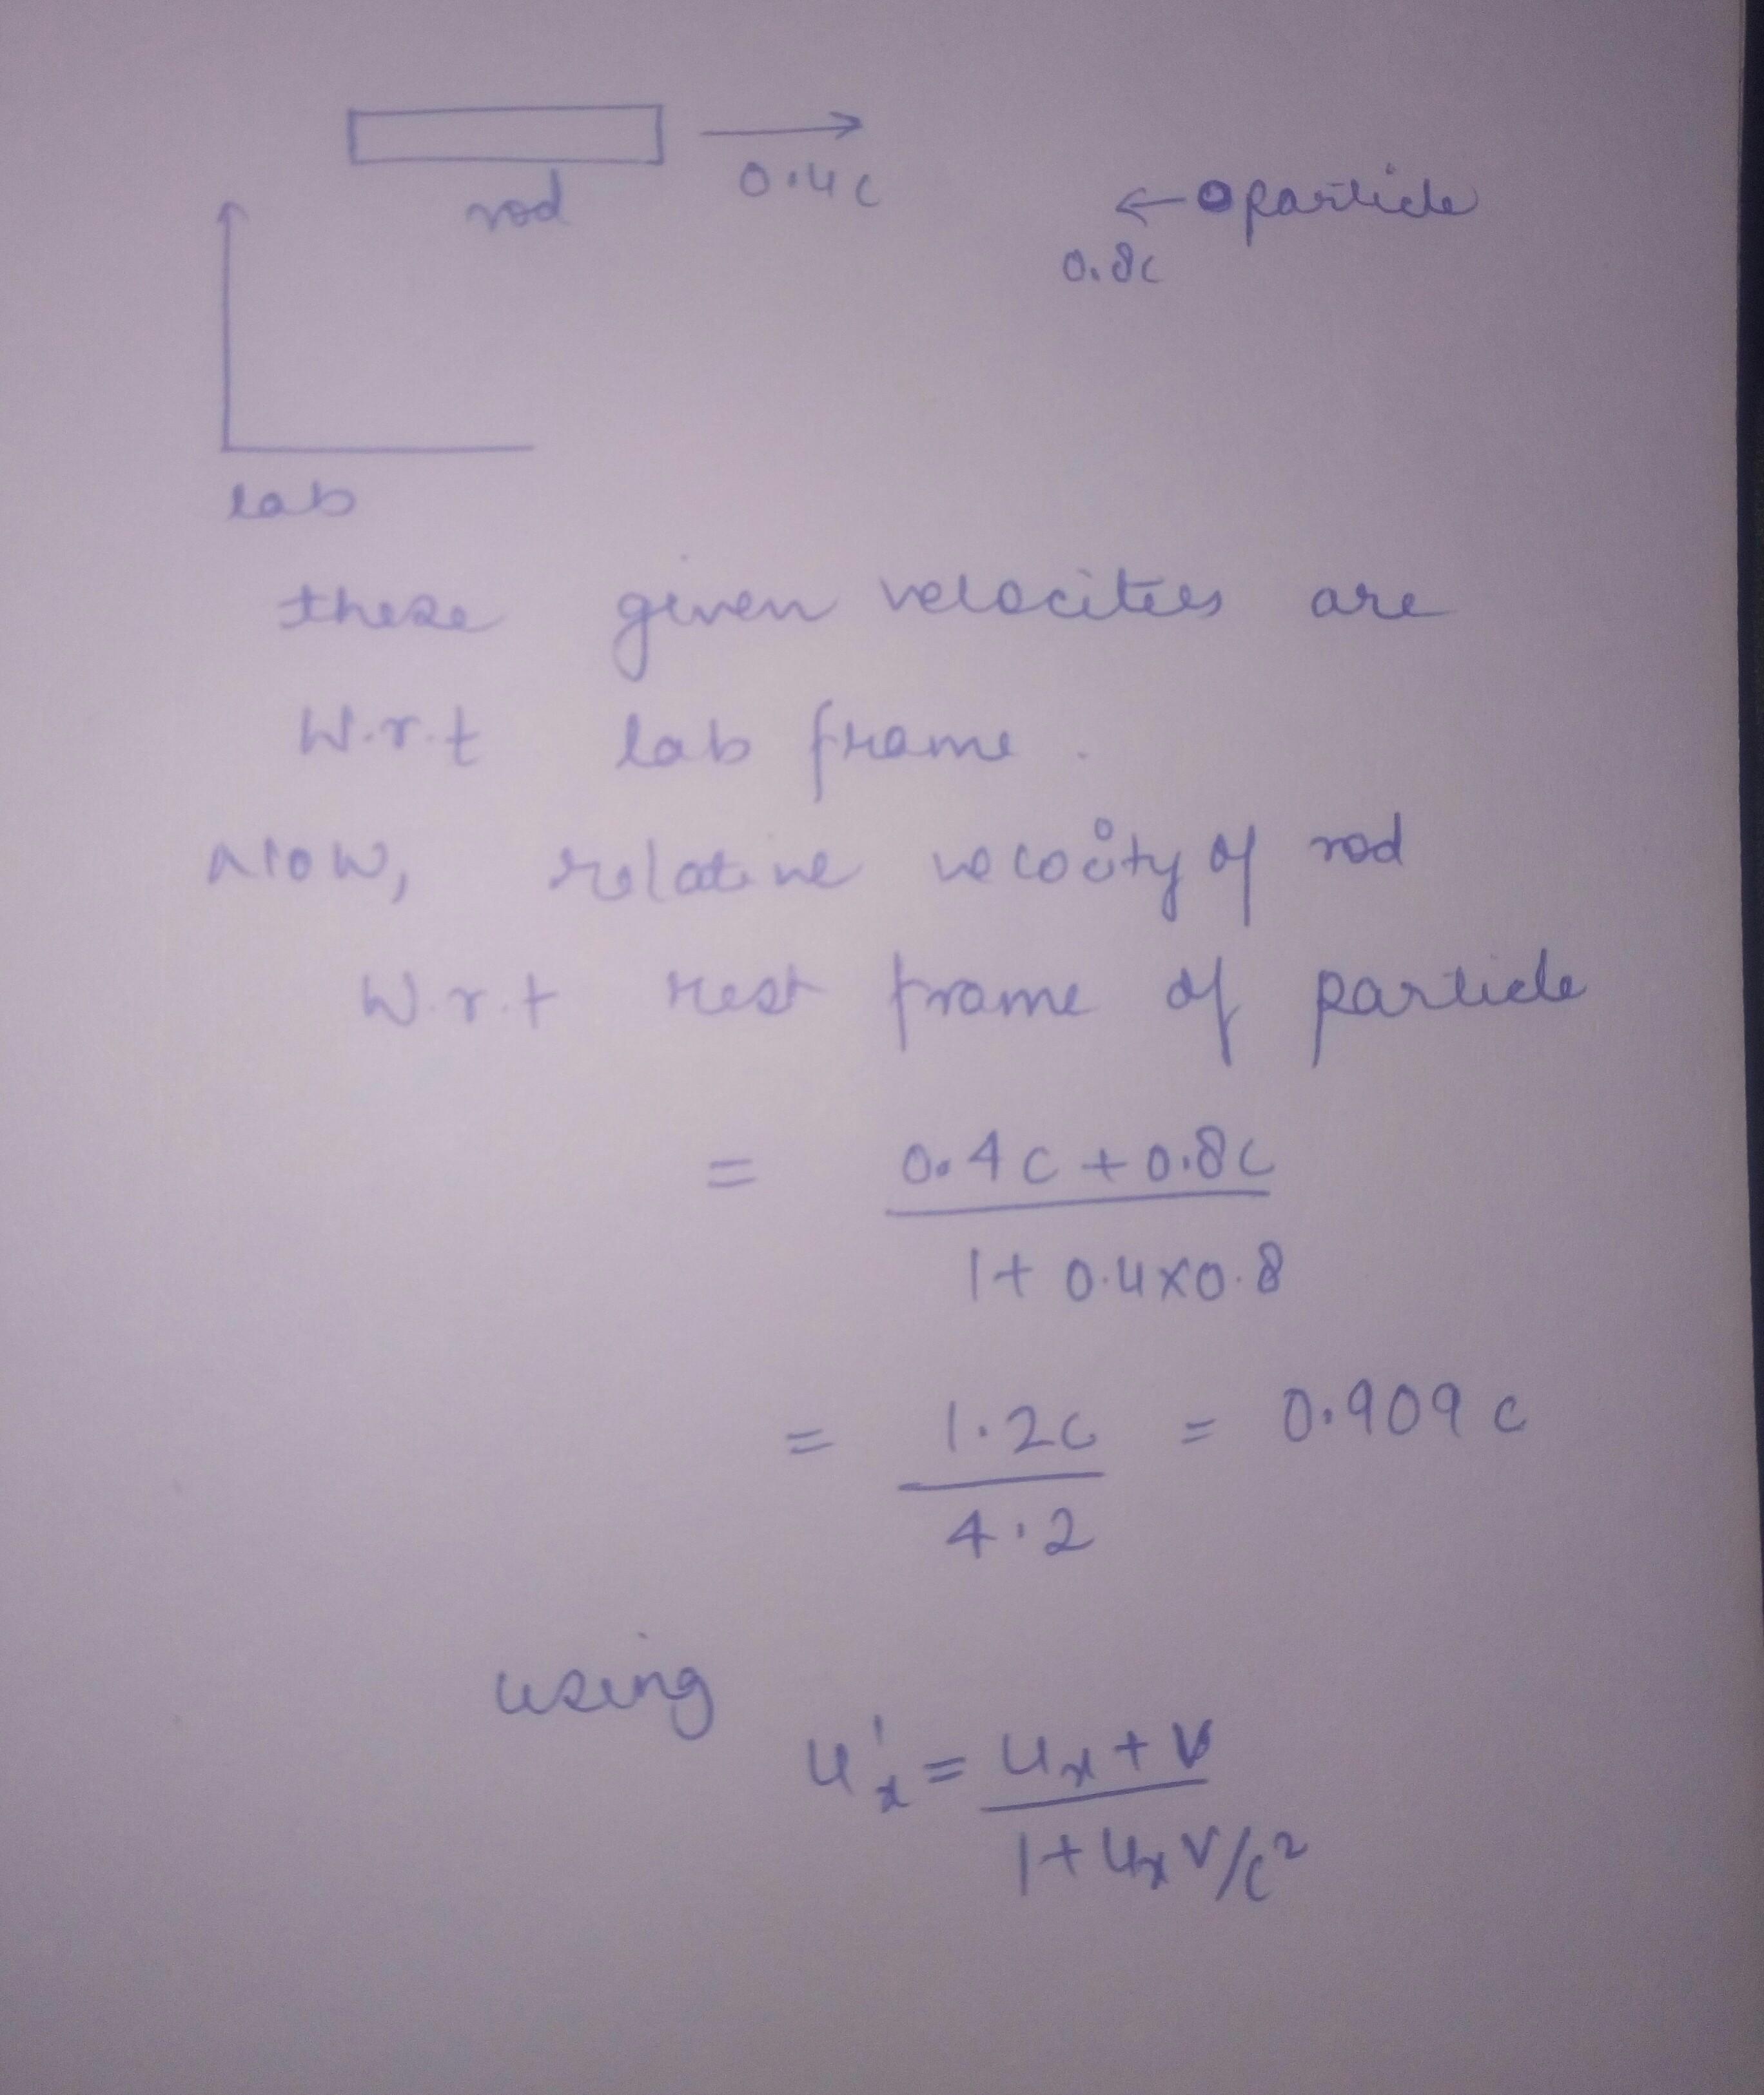 0.4c
rod
←o particle
0.8c
lab
these given velocities are
W.r.t lab frame.
Now, relative velocity of rod
W.r.t rest frame of particle
= 0.4c + 0.8c
1 + 0.4x0.8
= 1.2c = 0.909 c
4.2
using
u'x = ux + v
1 + ux v/c²